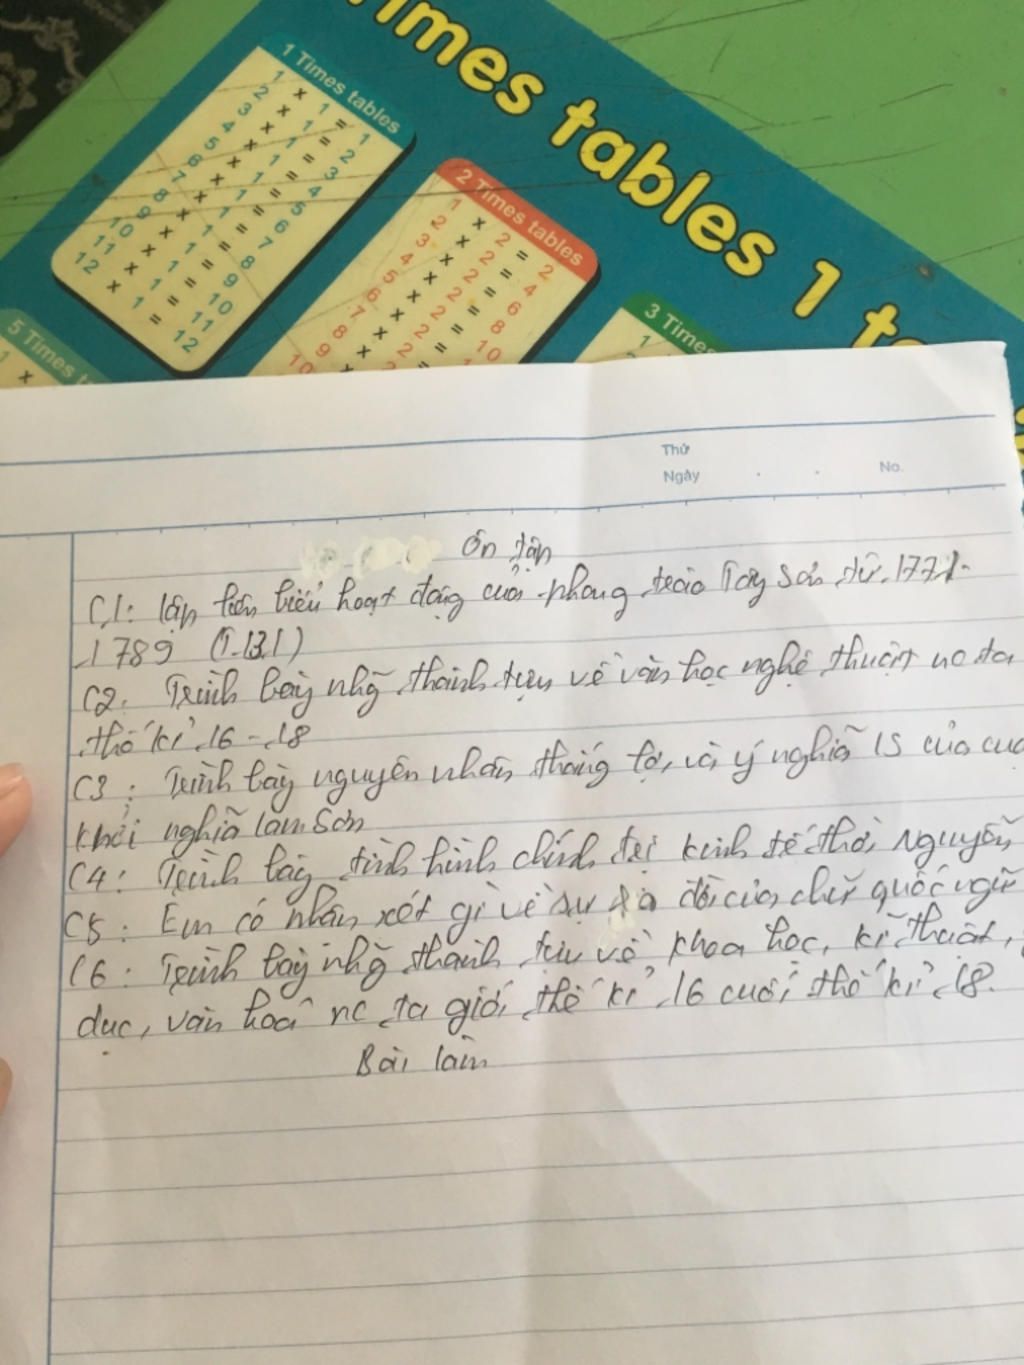 Times tables 1 to
1 Times tables
1 × 1 = 1
2 × 1 = 2
3 × 1 = 3
4 × 1 = 4
5 × 1 = 5
6 × 1 = 6
7 × 1 = 7
8 × 1 = 8
9 × 1 = 9
10 × 1 = 10
11 × 1 = 11
12 × 1 = 12
2 Times tables
1 × 2 = 2
2 × 2 = 4
3 × 2 = 6
4 × 2 = 8
5 × 2 = 10
6 × 2 =
7 × 2
8 × 2
9 ×
10
3 Times
1
5 Times
1 ×
Thứ
Ngày . . No.
Ôn tập
C1: lập niên biểu hoạt động của phong trào Tây Sơn từ 1771-
1789 (T.131)
C2: Trình bày nhg~ thành tựu về văn học nghệ thuật nc ta
thế kỉ 16 - 18
C3: Trình bày nguyên nhân thắng lợi, và ý nghĩa LS của cuộ
khởi nghĩa lam Sơn
C4: Trình bày tình hình chính trị kinh tế thời Nguyễn
C5: Em có nhận xét gì về sự ra đời của chữ quốc ngữ
C6: Trình bày nhg~ thành tựu về khoa học, kĩ thuật,
dục, văn hoá nc ta giới thế kỉ 16 cuối thế kỉ 18.
Bài làm